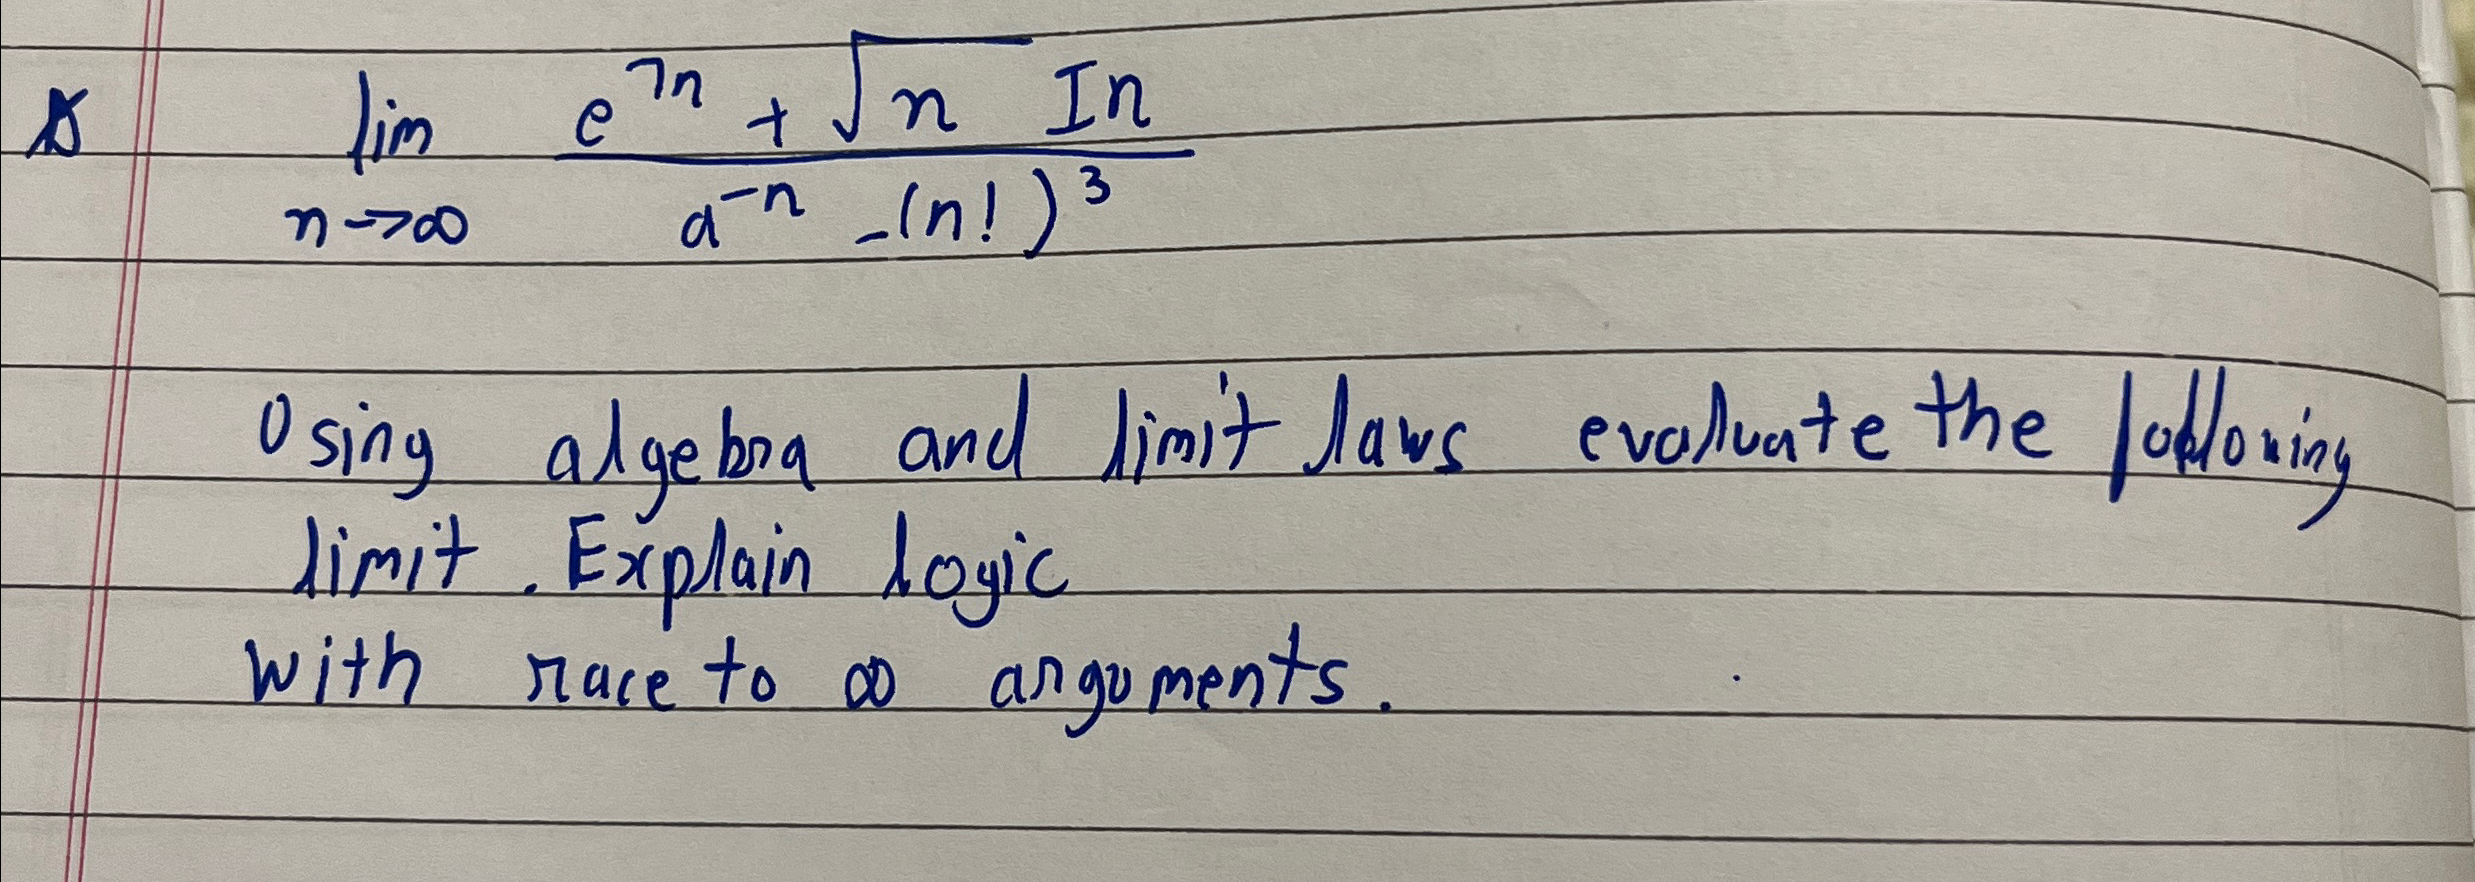 lim e^7n + √n In
n→∞ a^-n -(n!)^3
Using algebra and limit laws evaluate the following
limit. Explain logic
with race to ∞ arguments.